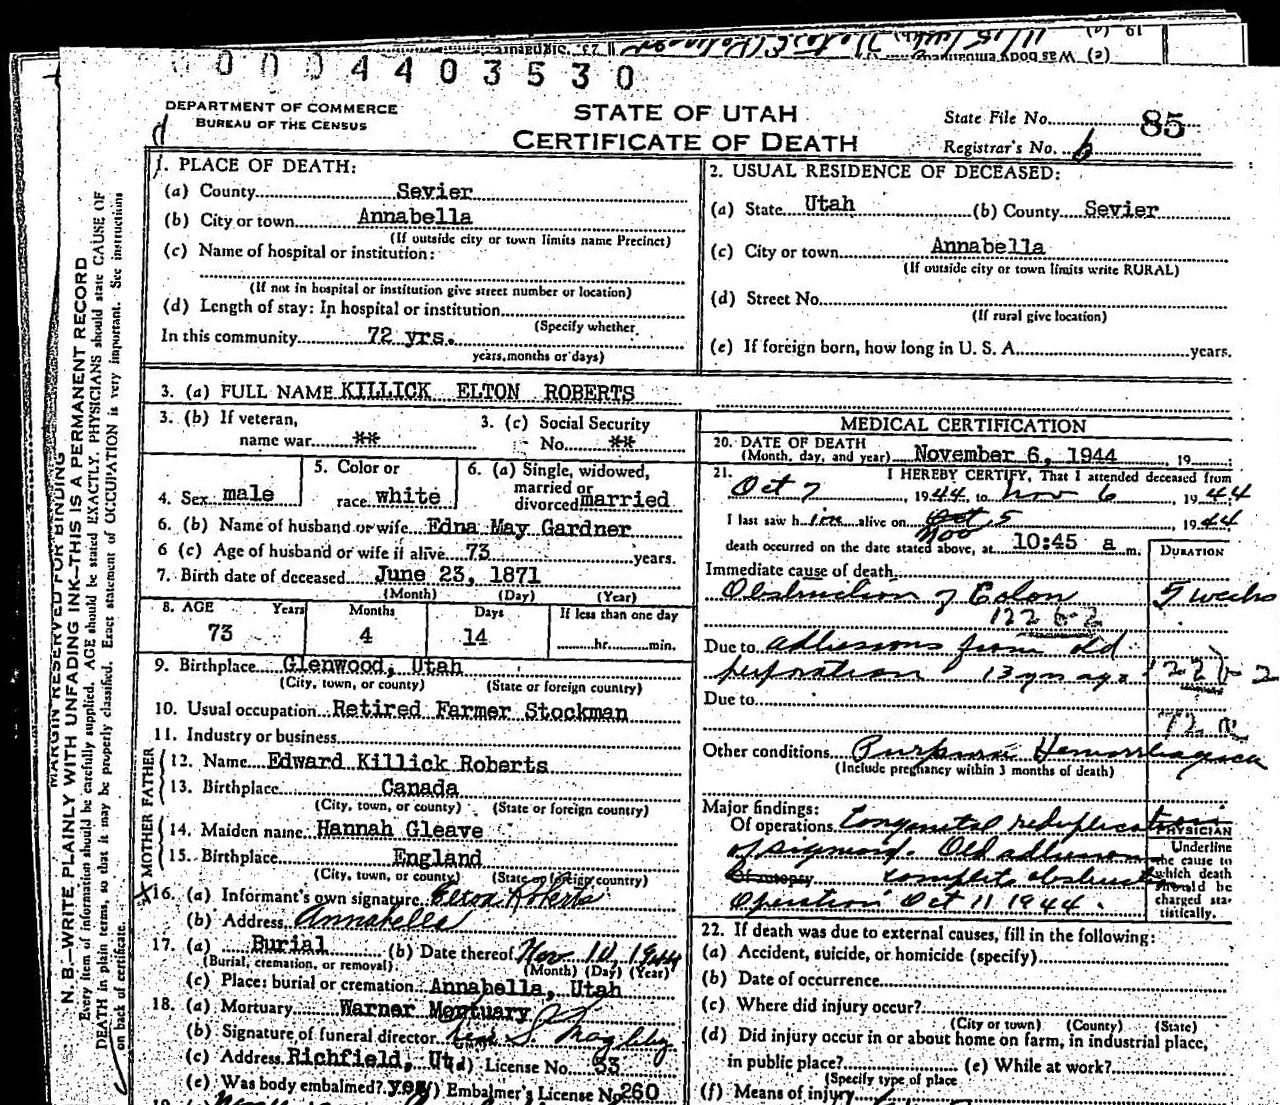 19 (a)
(c) Was body embalmed?
23. Signature
0 0 0 4 4 0 3 5 3 0
DEPARTMENT OF COMMERCE
BUREAU OF THE CENSUS
STATE OF UTAH
CERTIFICATE OF DEATH
State File No. 85
Registrar's No. 6
MARGIN RESERVED FOR BINDING
N. B.—WRITE PLAINLY WITH UNFADING INK—THIS IS A PERMANENT RECORD
Every item of information should be carefully supplied. AGE should be stated EXACTLY. PHYSICIANS should state CAUSE OF
DEATH in plain terms, so that it may be properly classified. Exact statement of OCCUPATION is very important. See instructions
on back of certificate.
1. PLACE OF DEATH:
(a) County Sevier
(b) City or town Annabella
(If outside city or town limits name Precinct)
(c) Name of hospital or institution:
(If not in hospital or institution give street number or location)
(d) Length of stay: In hospital or institution
(Specify whether
In this community 72 yrs.
years, months or days)
2. USUAL RESIDENCE OF DECEASED:
(a) State Utah (b) County Sevier
(c) City or town Annabella
(If outside city or town limits write RURAL)
(d) Street No.
(If rural give location)
(e) If foreign born, how long in U. S. A. years.
3. (a) FULL NAME KILLICK ELTON ROBERTS
3. (b) If veteran, 3. (c) Social Security
name war ** No. **
4. Sex male 5. Color or race white 6. (a) Single, widowed, married or divorced married
6. (b) Name of husband or wife Edna May Gardner
6 (c) Age of husband or wife if alive 73 years.
7. Birth date of deceased June 23, 1871
(Month) (Day) (Year)
8. AGE Years Months Days If less than one day
73 4 14 hr. min.
9. Birthplace Glenwood, Utah
(City, town, or county) (State or foreign country)
10. Usual occupation Retired Farmer Stockman
11. Industry or business
FATHER
12. Name Edward Killick Roberts
13. Birthplace Canada
(City, town, or county) (State or foreign country)
MOTHER
14. Maiden name Hannah Gleave
15. Birthplace England
(City, town, or county) (State or foreign country)
X 16. (a) Informant's own signature Elton Roberts
(b) Address Annabella
17. (a) Burial (b) Date thereof Nov 10 1944
(Burial, cremation, or removal) (Month) (Day) (Year)
(c) Place: burial or cremation Annabella, Utah
18. (a) Mortuary Warner Mortuary
(b) Signature of funeral director S Magleby
(c) Address Richfield, Ut (d) License No. 33
(e) Was body embalmed? yes (f) Embalmer's License No 260
MEDICAL CERTIFICATION
20. DATE OF DEATH
(Month, day, and year) November 6, 1944, 19
21. I HEREBY CERTIFY, That I attended deceased from
Oct 7, 1944, to Nov 6 1944
I last saw h im alive on Oct 5, 1944
Nov
death occurred on the date stated above, at 10:45 a m.
DURATION
Immediate cause of death
Obstruction of Colon 5 weeks
122 b-2
Due to adhesions from old
perforation 13 yrs ago 122 b-2
Due to
72 a
Other conditions Purpura Hemorrhagica
(Include pregnancy within 3 months of death)
Major findings:
Of operations Congenital reduplication
of sigmoid. Old adhesion
Of autopsy complete obstruct
Operation Oct 11 1944.
PHYSICIAN
Underline
the cause to
which death
should be
charged sta-
tistically.
22. If death was due to external causes, fill in the following:
(a) Accident, suicide, or homicide (specify)
(b) Date of occurrence
(c) Where did injury occur?
(City or town) (County) (State)
(d) Did injury occur in or about home on farm, in industrial place,
in public place? (e) While at work?
(Specify type of place
(f) Means of injury